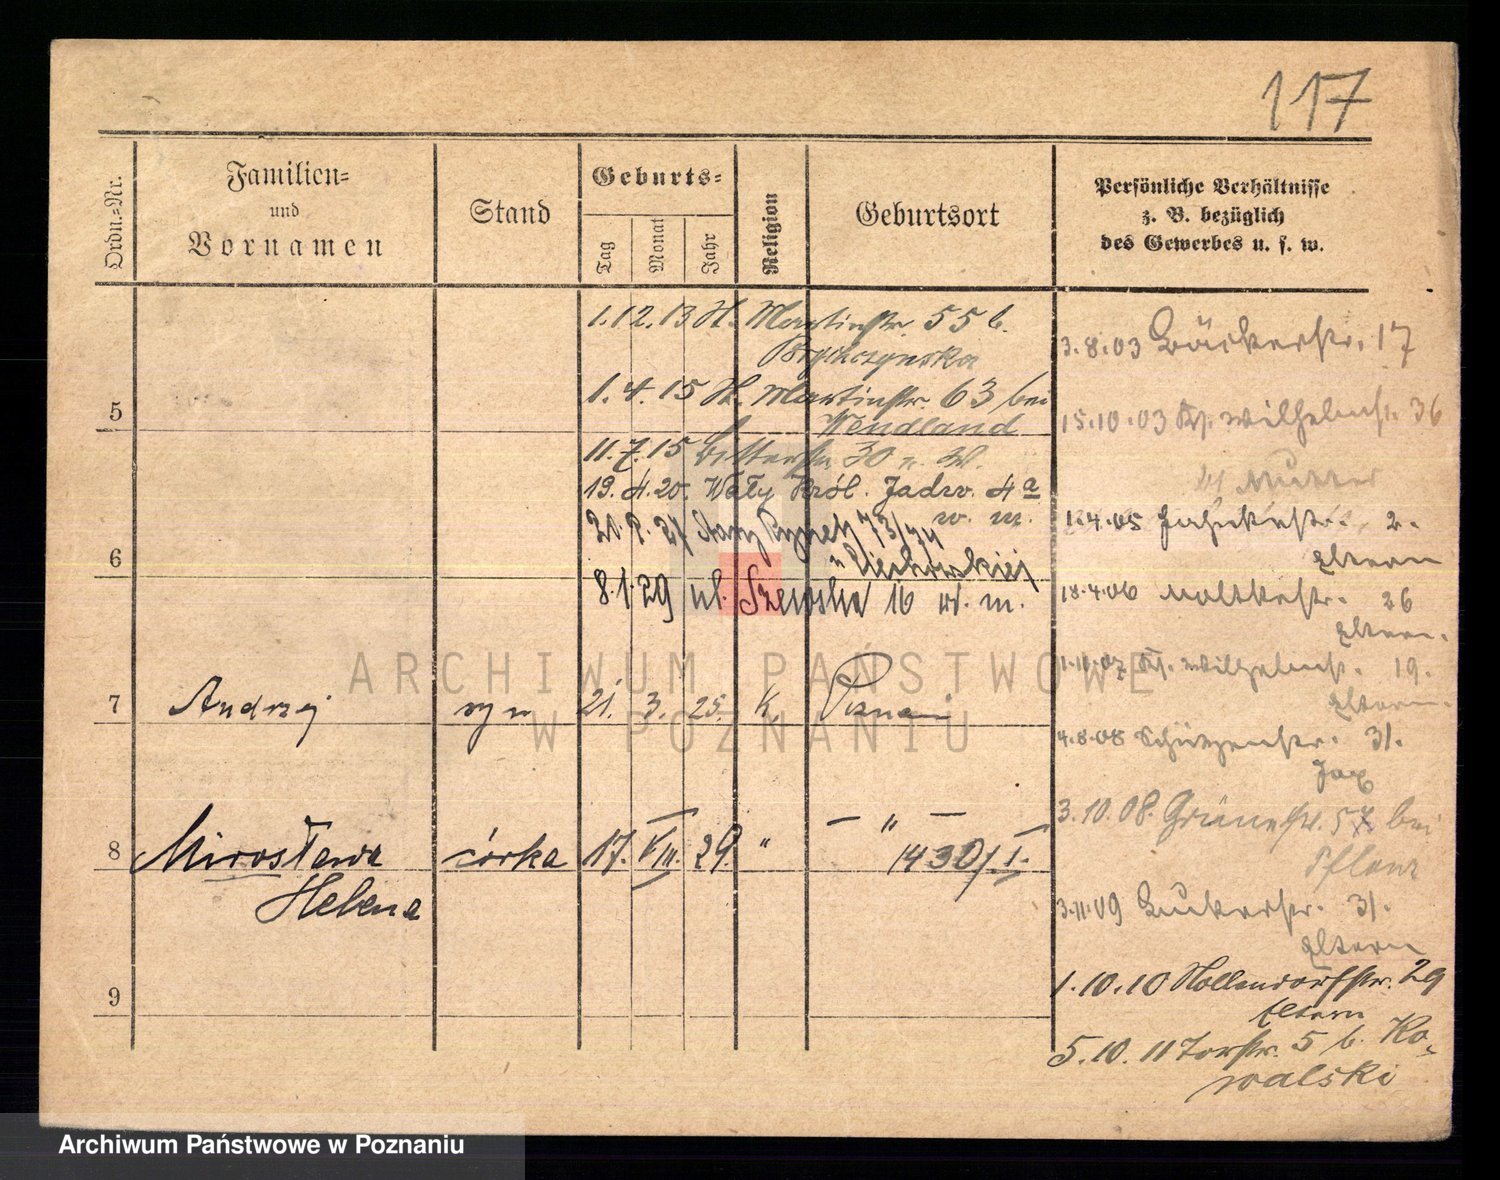 117
Ordn.-Nr.
Familien-
und
Vornamen
Stand
Geburts-
Tag
Monat
Jahr
Religion
Geburtsort
Persönliche Verhältnisse
z. B. bezüglich
des Gewerbes u. s. w.
1.12.13 St. Martinstr. 55 b.
1.4.15 St. Martinstr. 63 bei
Wendland
11.7.15 30
19.4.20. Wały Król. Jadw. 4a
w. m.
Stary Rynek 73/74
8.1.29 ul. Szewska 16 w. m.
5
6
7 Andrzej syn 21. 3. 25. K. Poznań
8 Mirosława córka 17. VIII. 29. " — " —
Helena
1430/I.
9
3.8.03 Bäckerstr. 17
15.10.03 Kl. Wilhelmst. 36
Mutter
1.4.05 2.
Eltern
18.4.06 Moltkestr. 26
Eltern.
1.10.07 Kl. Wilhelmst. 19.
Eltern.
4.8.08 Schützenstr. 31.
3.10.08. Grünestr. bei
3.11.09 31.
Eltern
1.10.10 Nollendorfstr. 29
Eltern
5.10.11 Torstr. 5 b. Ko-
walski
ARCHIWUM PAŃSTWOWE
W POZNANIU
Archiwum Państwowe w Poznaniu